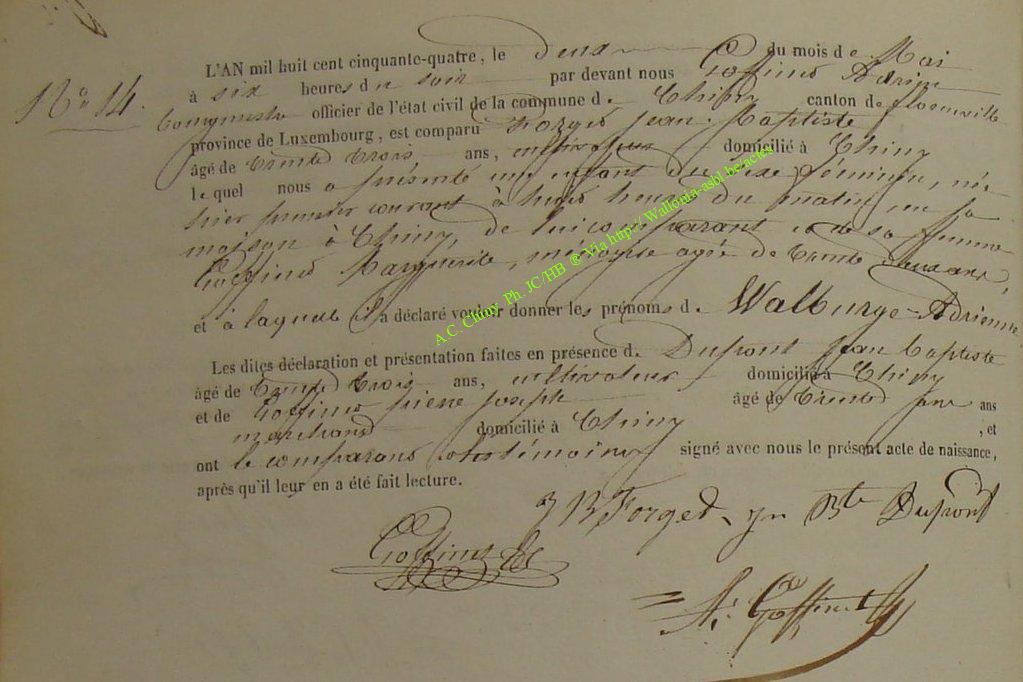 N° 14.
L'AN mil huit cent cinquante-quatre, le deux du mois de Mai
à six heures du soir par devant nous Goffinet Adrien
Bourgmestre officier de l'état civil de la commune de Chiny canton de Florenville
province de Luxembourg, est comparu Forget Jean-Baptiste
âgé de trente trois ans, cultivateur domicilié à Chiny
lequel nous a présenté un enfant du sexe féminin, née
hier premier courant à huit heures du matin, en sa
maison à Chiny, de lui comparant et de sa femme
Goffinet Marguerite, ménagère agée de trente deux ans
et à laquelle il a déclaré vouloir donner les prénoms de Walburge-Adrienne
Les dites déclaration et présentation faites en présence de Dupont Jean Baptiste
âgé de trente trois ans, cultivateur domicilié à Chiny
et de Goffinet pierre Joseph âgé de trente ans
marchand domicilié à Chiny , et
ont le comparant et témoins signé avec nous le présent acte de naissance,
après qu'il leur en a été fait lecture.
J B Forget Jn Bte Dupont
Goffinet
Ad. Goffinet
A.C. Chiny Ph. JC/HB ® Via http://Wallonia-asbl.be/actes